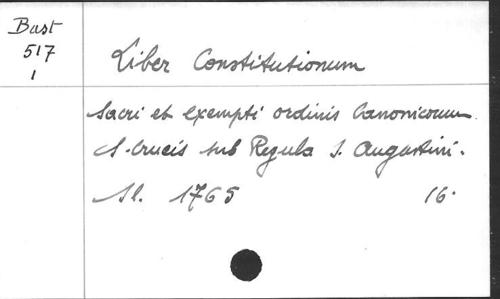 Bast
517
1
Liber Constitutionum
Sacri et exempti ordinis Canonicorum
S. Crucis sub Regula S. Augustini.
Sl. 1765 16.